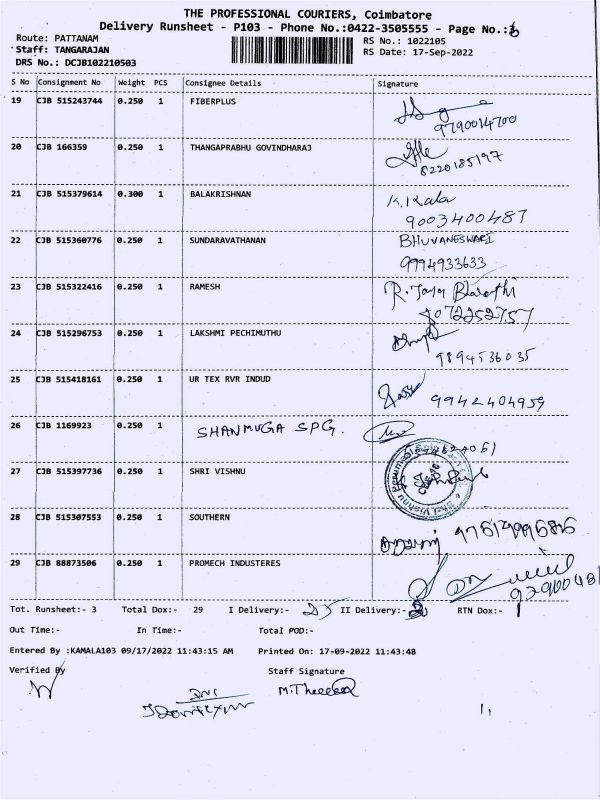 THE PROFESSIONAL COURIERS, Coimbatore
Delivery Runsheet - P103 - Phone No.:0422-3505555 - Page No.:3
Route: PATTANAM
Staff: TANGARAJAN
DRS No.: DCJB102210503
RS No.: 1022105
RS Date: 17-Sep-2022
S No Consignment No Weight PCS Consignee Details Signature
19 CJB 515243744 0.250 1 FIBERPLUS
9790014700
20 CJB 166359 0.250 1 THANGAPRABHU GOVINDHARAJ
8220185197
21 CJB 515379614 0.300 1 BALAKRISHNAN K.Kala
9003400487
22 CJB 515360776 0.250 1 SUNDARAVATHANAN BHUVANESWARI
9994933633
23 CJB 515322416 0.250 1 RAMESH R. Jaya Bharathi
9072252757
24 CJB 515296753 0.250 1 LAKSHMI PECHIMUTHU
9894536035
25 CJB 515418161 0.250 1 UR TEX RVR INDUD
9942404959
26 CJB 1169923 0.250 1 SHANMUGA SPG.
27 CJB 515397736 0.250 1 SHRI VISHNU
28 CJB 515307553 0.250 1 SOUTHERN
29 CJB 88873506 0.250 1 PROMECH INDUSTERES
Tot. Runsheet:- 3 Total Dox:- 29 I Delivery:- 25 II Delivery:- RTN Dox:- 1
Out Time:- In Time:- Total POD:-
Entered By :KAMALA103 09/17/2022 11:43:15 AM Printed On: 17-09-2022 11:43:48
Verified By Staff Signature